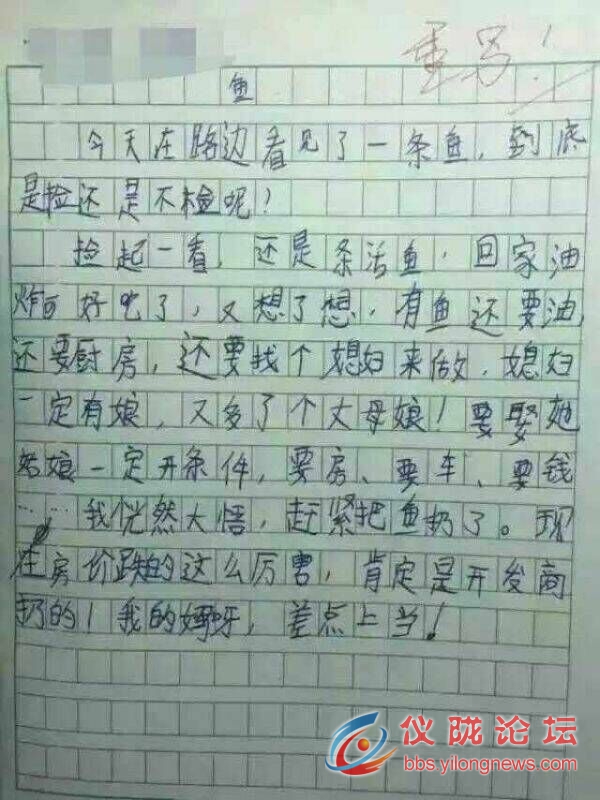 重写!
鱼
今天在路边看见了一条鱼,到底
是捡还是不捡呢?
捡起一看,还是条活鱼,回家油
炸可好吃了,又想了想,有鱼还要油,
还要厨房,还要找个媳妇来做,媳妇
一定有娘,又多了个丈母娘!要娶她
姑娘一定开条件,要房、要车、要钱
……我恍然大悟,赶紧把鱼扔了。现
在房价跌的这么厉害,肯定是开发商
扔的!我的妈呀,差点上当!
仪陇论坛
bbs.yilongnews.com